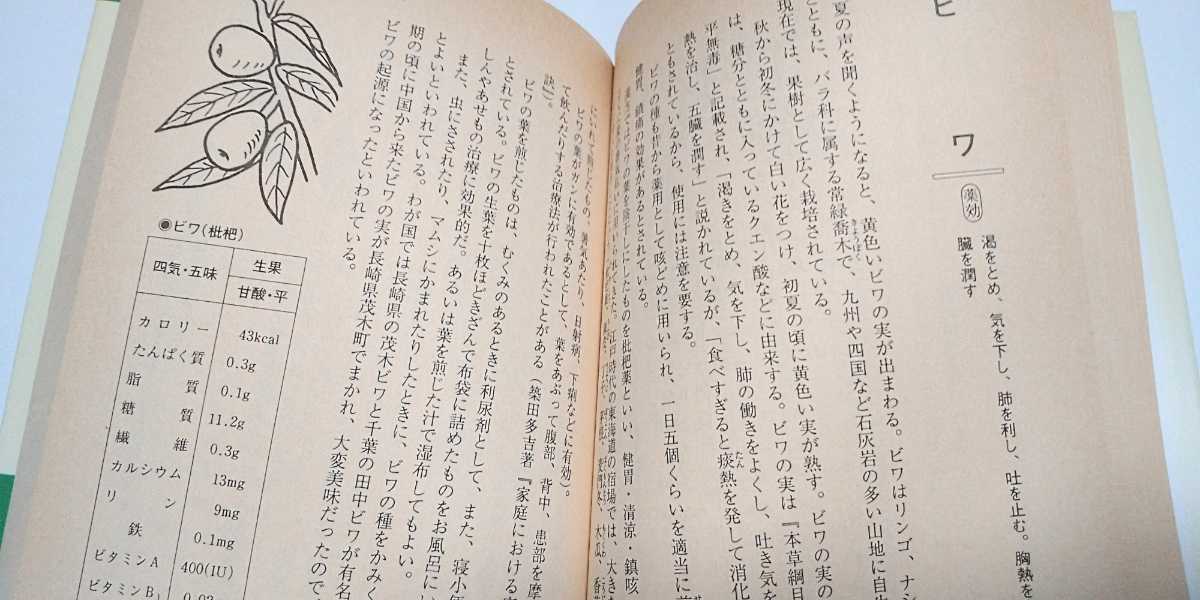 ビワ
薬効
渇をとめ、気を下し、肺を利し、吐を止む。胸熱を
臓を潤す
夏の声を聞くようになると、黄色いビワの実が出まわる。ビワはリンゴ、ナシ
とともに、バラ科に属する常緑喬木で、九州や四国など石灰岩の多い山地に自生
きょうぼく
現在では、果樹として広く栽培されている。
秋から初冬にかけて白い花をつけ、初夏の頃に黄色い実が熟す。ビワの実の
は、糖分とともに入っているクエン酸などに由来する。ビワの実は『本草綱目
平無毒」と記載され、「渇きをとめ、気を下し、肺の働きをよくし、吐き気を
熱を治し、五臓を潤す」と説かれているが、「食べすぎると痰熱を発して消化
たん
ともされているから、使用には注意を要する。
ビワの種も昔から薬用として咳どめに用いられ、一日五個くらいを適当に
健胃、鎮痛の効果があるとされている。
葉を陰干しにしたものを枇杷葉といい、健胃・清涼・鎮咳
江戸時代の東海道の宿場では、大きな
にいれて煎じたもの、暑気あたり、日射病、下痢などに有効)。
ビワの葉がガンに有効であるとして、葉をあぶって腹部、背中、患部を摩
て飲んだりする治療法が行われたことがある(築田多吉著『家庭における
訣』)。
ビワの葉を煎じたものは、むくみのあるときに利尿剤として、また、寝小便
とされている。ビワの生葉を十枚ほどきざんで布袋に詰めたものをお風呂に
しんやあせもの治療に効果的だ。あるいは葉を煎じた汁で湿布してもよい。
また、虫にさされたり、マムシにかまれたりしたときに、ビワの種をかみく
とよいといわれている。わが国では長崎県の茂木ビワと千葉の田中ビワが有名
期の頃に中国から来たビワの実が長崎県茂木町でまかれ、大変美味だったので
ビワの起源になったといわれている。
●ビワ(枇杷)
四気・五味 生果
甘酸・平
カロリー 43kcal
たんぱく質 0.3g
脂質 0.1g
糖質 11.2g
繊維 0.3g
カルシウム 13mg
リン 9mg
鉄 0.1mg
ビタミンA 400(IU)
ビタミンB₁